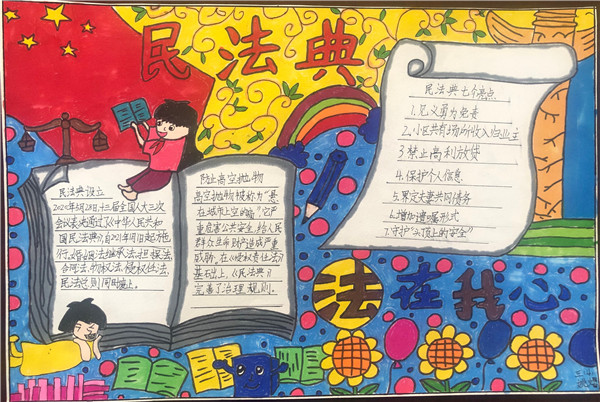 民法典
民法典设立
2020年5月28日,十三届全国人大三次
会议表决通过了《中华人民共和
国民法典》,自2021年1月1日起施
行。婚姻法、继承法、担保法、
合同法、物权法、侵权责任法、
民法总则同时废止。
防止高空抛物
高空抛物被称为“悬
在城市上空的痛”它严
重危害公共安全,给人民
群众生命财产造成严重
威胁,在《侵权责任法》
基础上,《民法典》
完善了治理规则.
民法典七个亮点
1.见义勇为免责
2.小区共有场所收入归业主
3.禁止高利放贷
4.保护个人信息
5.界定夫妻共同债务
6.增加遗嘱形式
7.守护“头顶上的安全”
法在我心